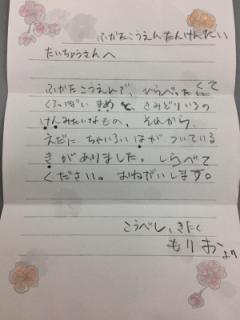 ふかたこうえんたんけんたい
たいちょうさんへ
ふかたこうえんで、ひらべったくて
くろっぽい まめ と、きみどりいろの
けんみたいなもの、それから、
えだに ちゃいろい はが ついている
きが ありました。しらべて
ください。おねがいします。
こうべし、きたく
もりおより